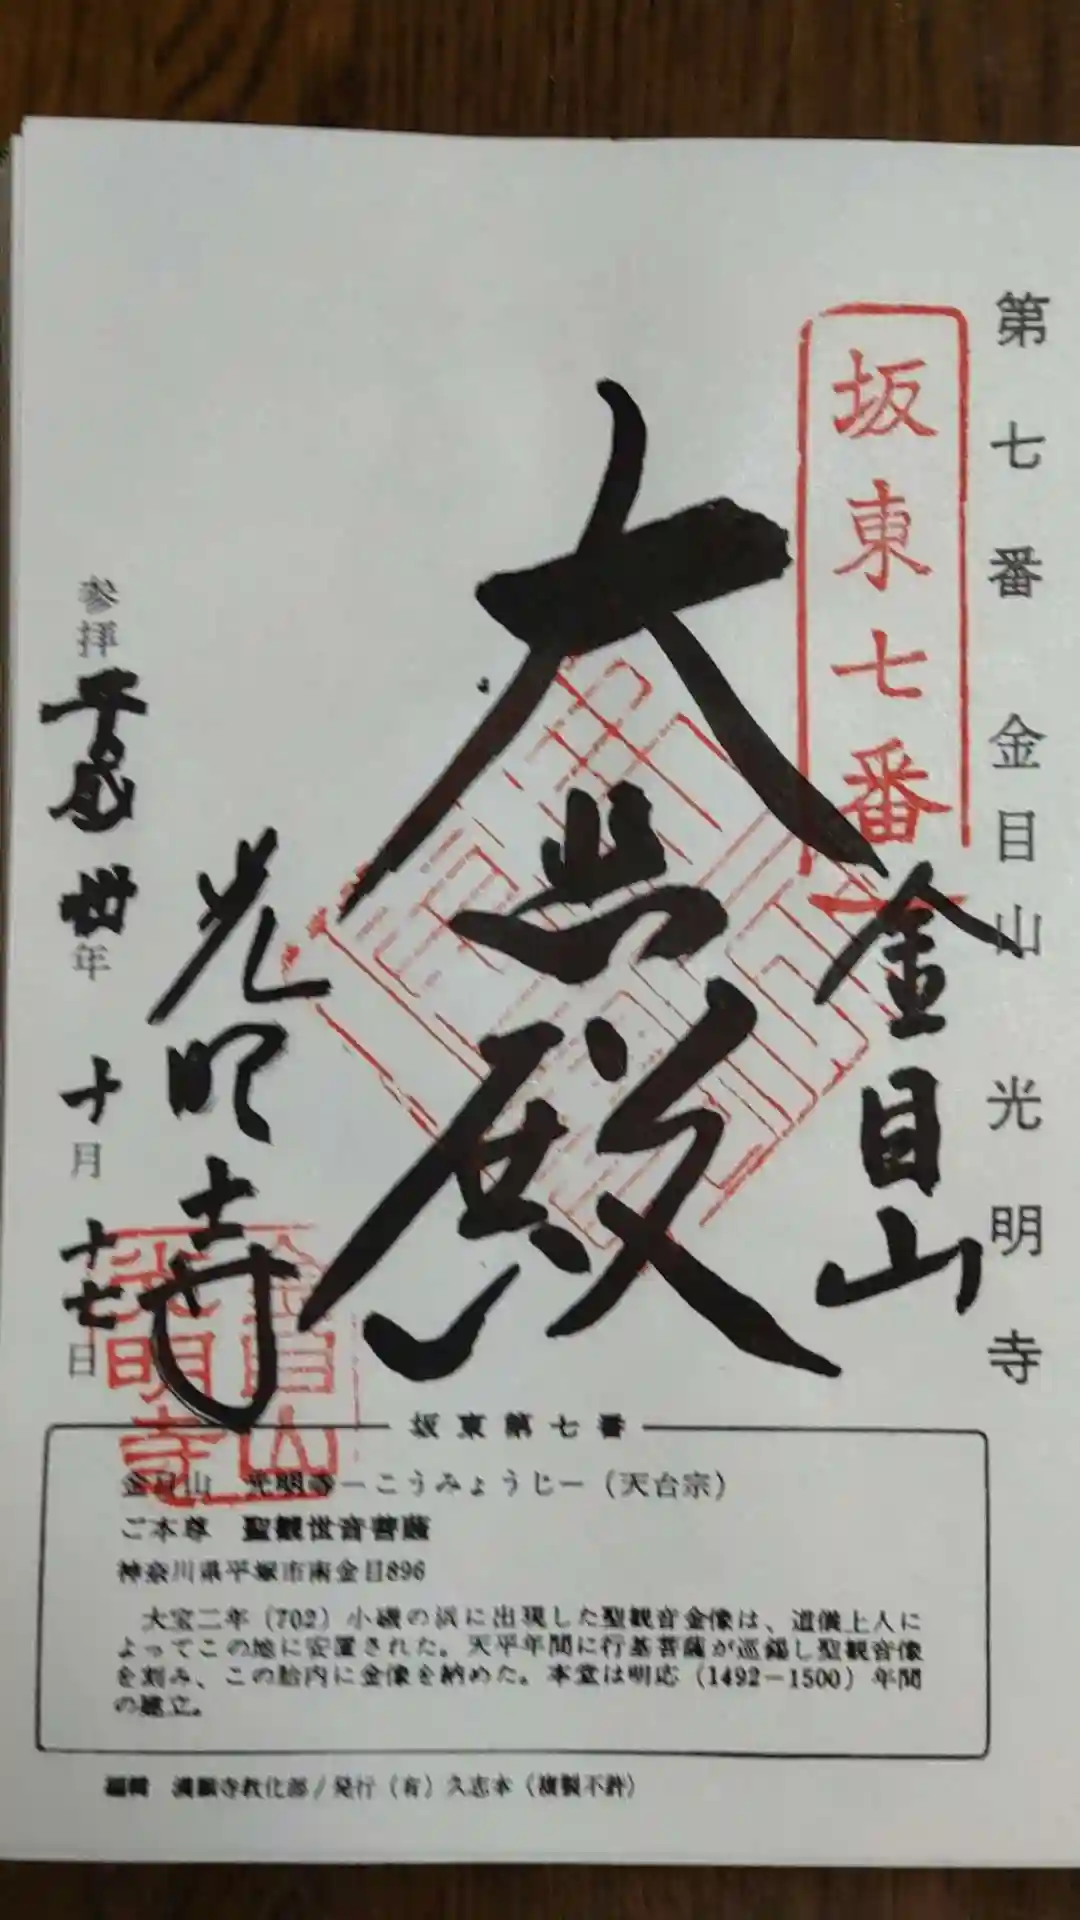 第七番 金目山 光明寺
坂東七番
金目山
大悲殿
光明寺
参拝 平成 丗年 十月 十七日
金目山
光明寺
坂東第七番
金目山 光明寺−こうみょうじ−（天台宗）
ご本尊 聖観世音菩薩
神奈川県平塚市南金目896
大宝二年（702）小磯の浜に出現した聖観音金像は、道儀上人に
よってこの地に安置された。天平年間に行基菩薩が巡錫し聖観音像
を刻み、この胎内に金像を納めた。本堂は明応（1492−1500）年間
の建立。
編輯 満願寺教化部/発行（有）久志本（複製不許）